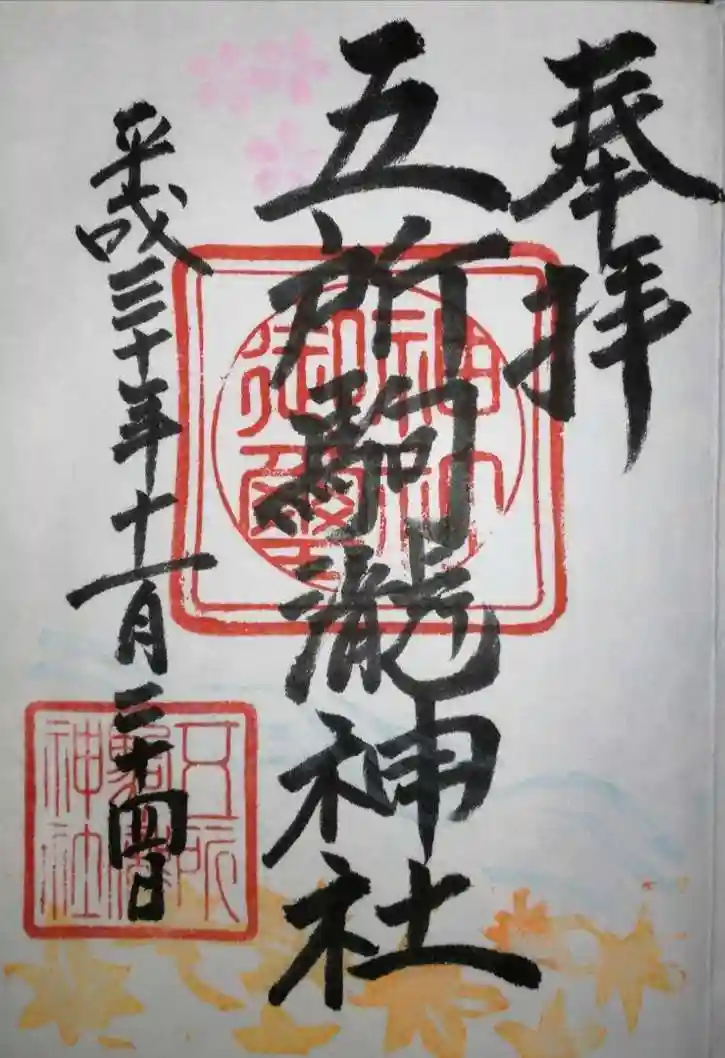 奉拝
五所駒瀧神社
平成三十年十一月二十四日
五所
駒瀧
神社